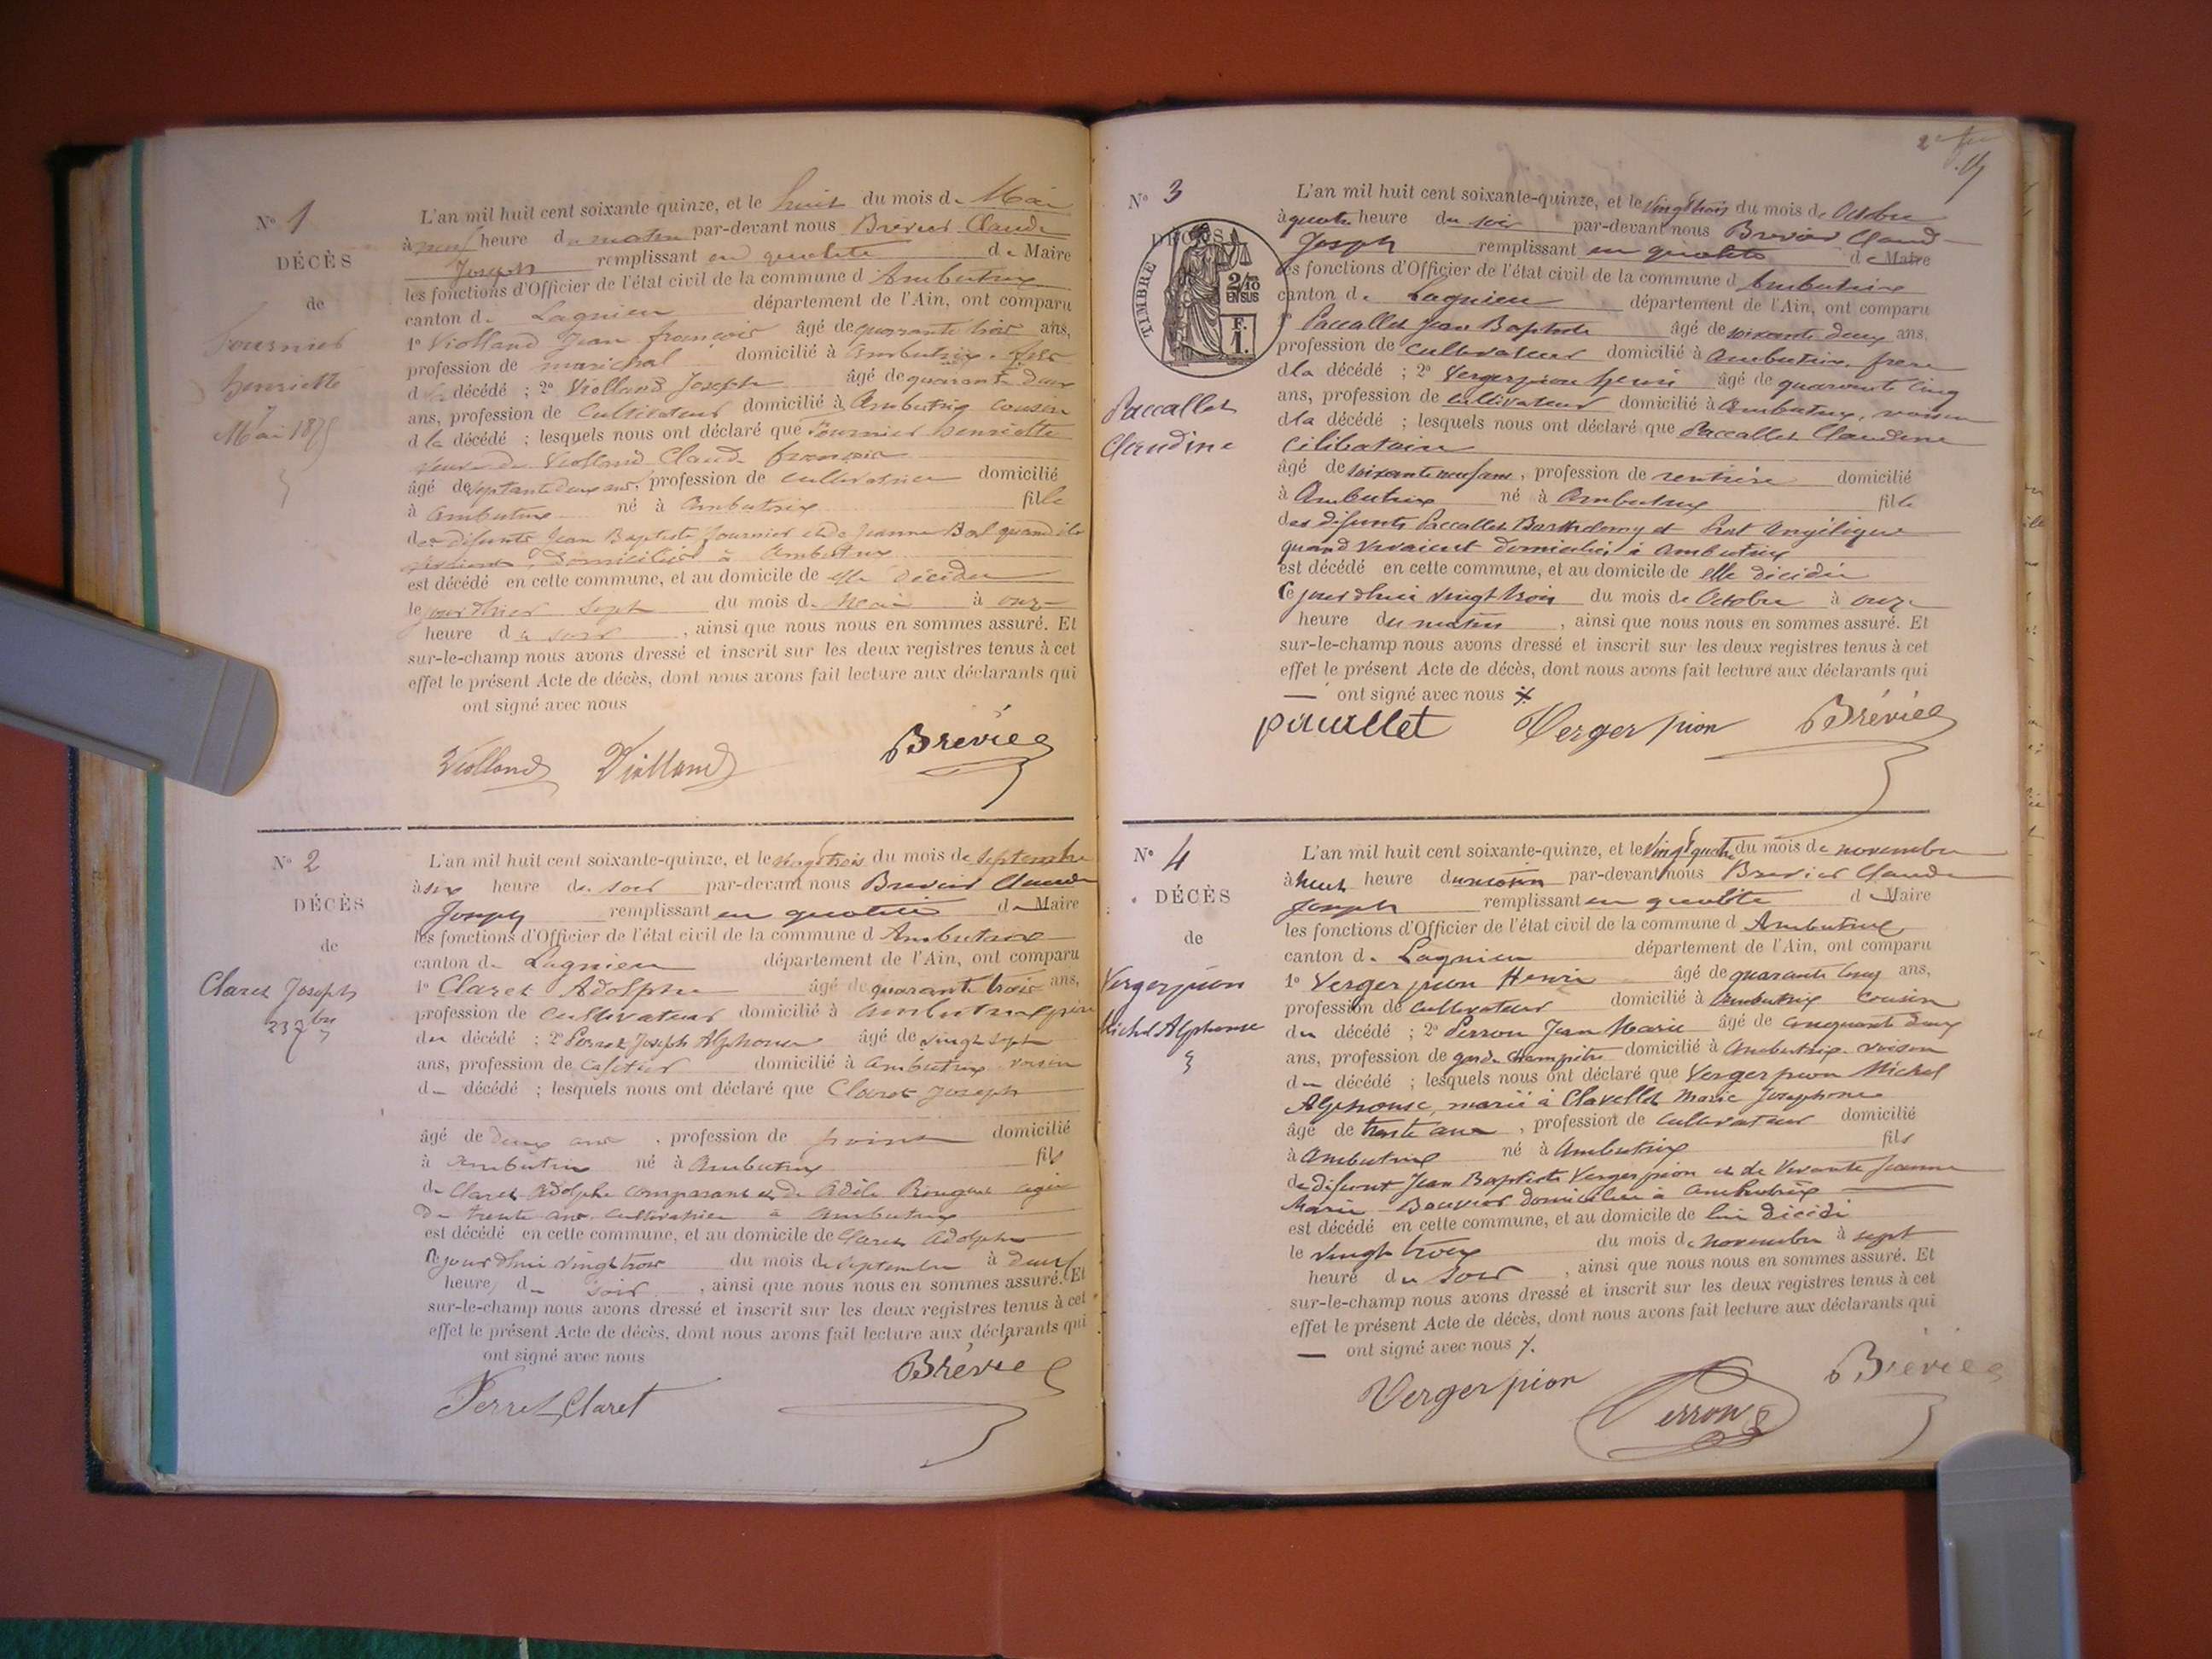 N° 1
DÉCÈS
de
Fournier
henriette
7
Mai 1875
L'an mil huit cent soixante quinze, et le huit du mois de Mai
à neuf heure du matin par-devant nous Brévier Claude
Joseph remplissant en qualité de Maire
les fonctions d'Officier de l'état civil de la commune d Ambutrix
canton de Lagnieu département de l'Ain, ont comparu
1° Violland Jean françois âgé de quarante trois ans,
profession de maréchal domicilié à Ambutrix. fils
d la décédé ; 2° Violland Joseph âgé de quarante deux
ans, profession de Cultivateur domicilié à Ambutrix cousin
d la décédé ; lesquels nous ont déclaré que Fournier henriette
veuve de Violland Claude françois
âgé de septante deux ans, profession de cultivatrice domicilié
à Ambutrix né à Ambutrix fille
des défunts Jean Baptiste fournier et de Jeanne Bal quand ils
vivaient domiciliés à Ambutrix
est décédé en cette commune, et au domicile de elle décédée
le jour d'hier Sept du mois de Mai à onze
heure du soir , ainsi que nous nous en sommes assuré. Et
sur-le-champ nous avons dressé et inscrit sur les deux registres tenus à cet
effet le présent Acte de décès, dont nous avons fait lecture aux déclarants qui
ont signé avec nous
Violland Violland Brévier
N° 2
DÉCÈS
de
Claret Joseph
23 7bre
L'an mil huit cent soixante-quinze, et le vingt trois du mois de septembre
à six heure du soir par-devant nous Brévier Claude
Joseph remplissant en qualité de Maire
les fonctions d'Officier de l'état civil de la commune d Ambutrix
canton de Lagnieu département de l'Ain, ont comparu
1° Claret Adolphe âgé de quarante trois ans,
profession de cultivateur domicilié à Ambutrix père
du décédé ; 2° Perret Joseph Alphonse âgé de vingt sept
ans, profession de cafetier domicilié à Ambutrix voisin
du décédé ; lesquels nous ont déclaré que Claret Joseph
âgé de deux ans , profession de point domicilié
à Ambutrix né à Ambutrix fils
de Claret Adolphe comparant et de Adèle agée
de trente ans cultivatrice à Ambutrix
est décédé en cette commune, et au domicile de Claret Adolphe
Ce jour d'hui vingt trois du mois de septembre à deux
heure du soir , ainsi que nous nous en sommes assuré. Et
sur-le-champ nous avons dressé et inscrit sur les deux registres tenus à cet
effet le présent Acte de décès, dont nous avons fait lecture aux déclarants qui
ont signé avec nous
Perret Claret Brévier
N° 3
DÉCÈS
TIMBRE
2/10
EN SUS
F.
1.
Paccallet
Claudine
L'an mil huit cent soixante-quinze, et le vingt trois du mois de Octobre
à quatre heure du soir par-devant nous Brévier Claude
Joseph remplissant en qualité de Maire
les fonctions d'Officier de l'état civil de la commune d Ambutrix
canton de Lagnieu département de l'Ain, ont comparu
1° Paccallet Jean Baptiste âgé de soixante deux ans,
profession de cultivateur domicilié à Ambutrix, frere
d la décédé ; 2° Vergerpion henri âgé de quarante cinq
ans, profession de cultivateur domicilié à Ambutrix, voisin
d la décédé ; lesquels nous ont déclaré que Paccallet Claudine
Célibataire
âgé de soixante neuf ans, profession de rentière domicilié
à Ambutrix né à Ambutrix fille
des défunts Paccallet Barthélemy et Prat Angélique
quand vivaient domiciliés à Ambutrix
est décédé en cette commune, et au domicile de elle décédée
Ce jour d'hui vingt trois du mois de Octobre à onze
heure du matin , ainsi que nous nous en sommes assuré. Et
sur-le-champ nous avons dressé et inscrit sur les deux registres tenus à cet
effet le présent Acte de décès, dont nous avons fait lecture aux déclarants qui
— ont signé avec nous
pacallet Vergerpion Brévier
N° 4
DÉCÈS
de
Vergerpion
Michel Alphonse
L'an mil huit cent soixante-quinze, et le vingt quatre du mois de novembre
à heure du matin par-devant nous Brévier Claude
Joseph remplissant en qualité de Maire
les fonctions d'Officier de l'état civil de la commune d Ambutrix
canton de Lagnieu département de l'Ain, ont comparu
1° Vergerpion Henri âgé de quarante cinq ans,
profession de cultivateur domicilié à Ambutrix cousin
du décédé ; 2° Perron Jean Marie âgé de cinquante deux
ans, profession de garde champêtre domicilié à Ambutrix voisin
du décédé ; lesquels nous ont déclaré que Vergerpion Michel
Alphonse, marié à Clavellet Marie Josephine
âgé de trente ans , profession de cultivateur domicilié
à Ambutrix né à Ambutrix fils
de défunt Jean Baptiste Vergerpion et de vivante Jeanne
Marie Bouvier domiciliée à Ambutrix
est décédé en cette commune, et au domicile de lui décédé
le vingt trois du mois de novembre à sept
heure du soir , ainsi que nous nous en sommes assuré. Et
sur-le-champ nous avons dressé et inscrit sur les deux registres tenus à cet
effet le présent Acte de décès, dont nous avons fait lecture aux déclarants qui
— ont signé avec nous
Vergerpion Perron Brévier